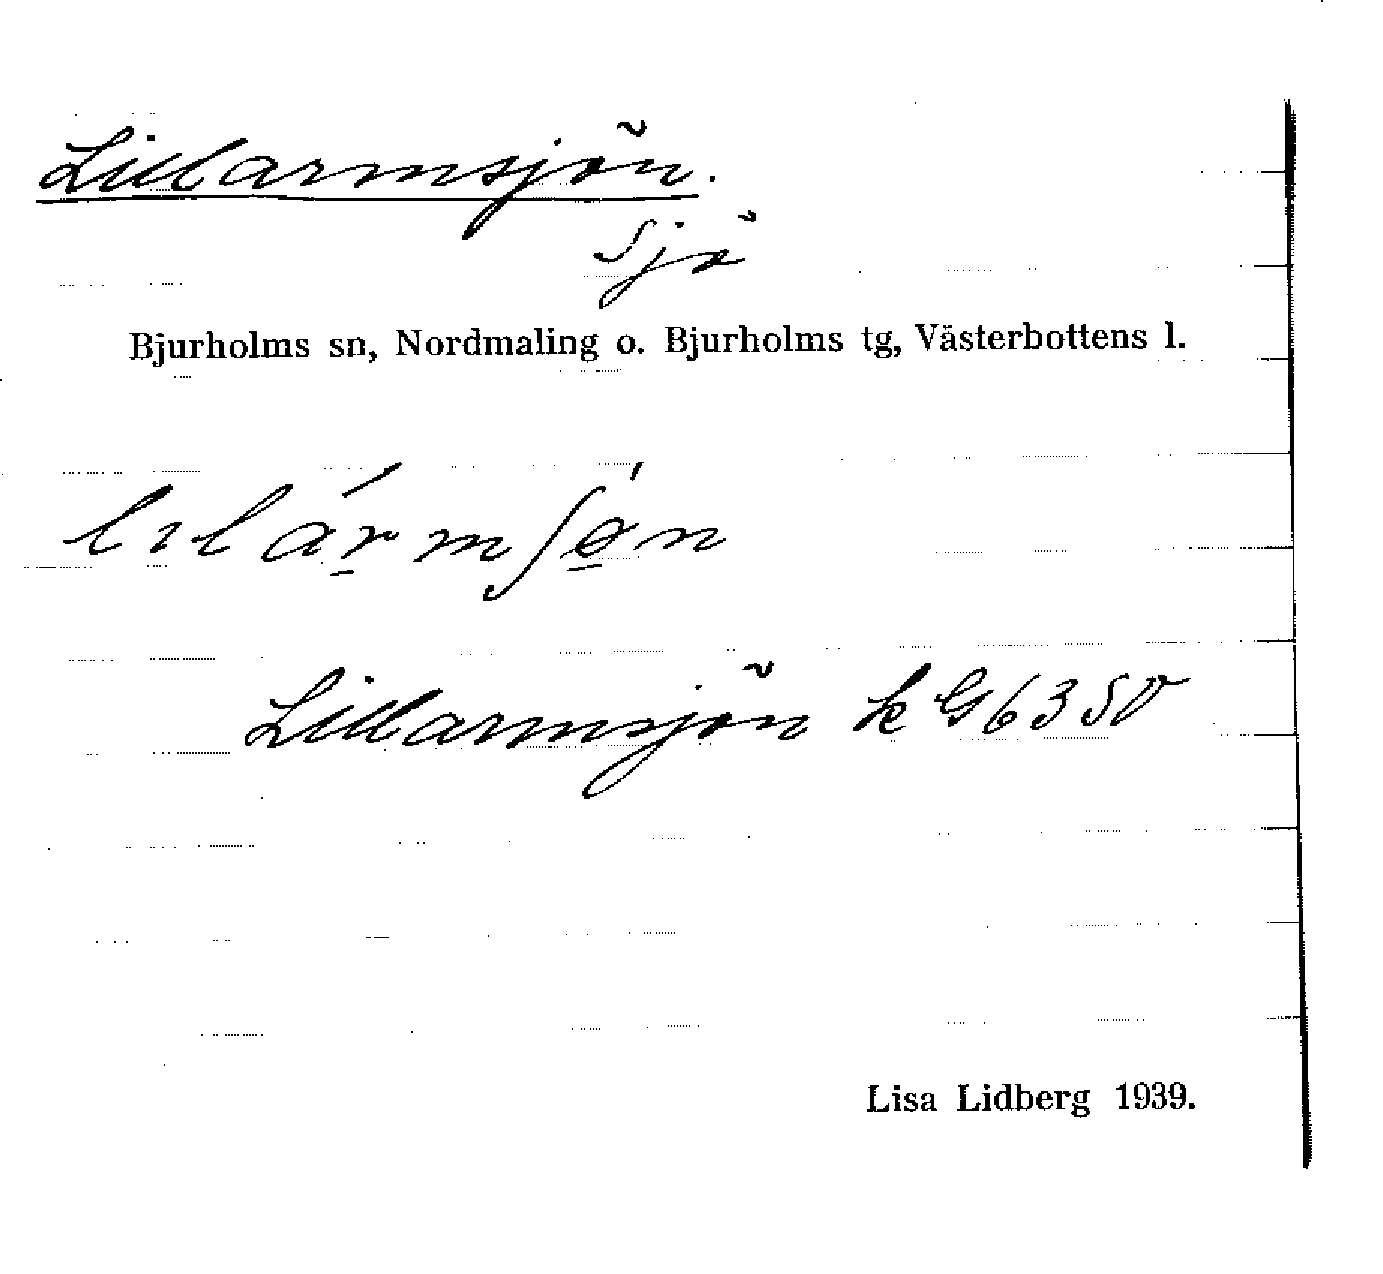 Lillarmsjön.
Sjö
Bjurholms sn, Nordmaling o. Bjurholms tg, Västerbottens l.
Lillarmsjön k G6350
Lisa Lidberg 1939.